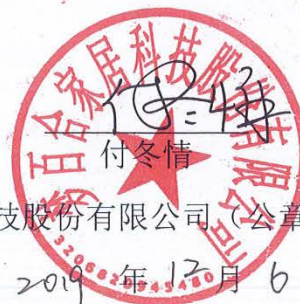 百合家居科技股份有限公司
付冬情
技股份有限公司（公章
2019 年 12 月 6